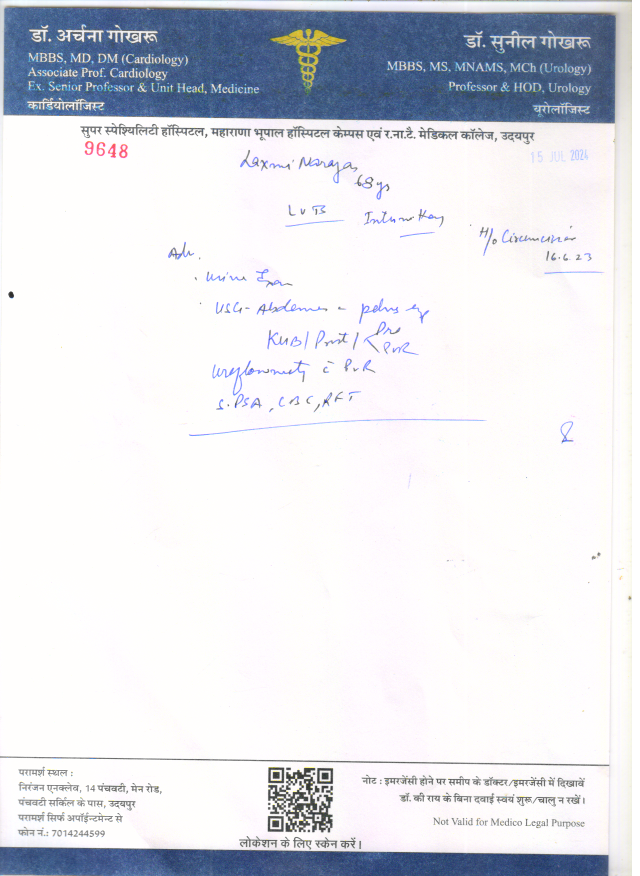 डॉ. अर्चना गोखरू
MBBS, MD, DM (Cardiology)
Associate Prof. Cardiology
Ex. Senior Professor & Unit Head, Medicine
कार्डियोलॉजिस्ट
डॉ. सुनील गोखरू
MBBS, MS, MNAMS, MCh (Urology)
Professor & HOD, Urology
यूरोलॉजिस्ट
सुपर स्पेश्यिलिटी हॉस्पिटल, महाराणा भूपाल हॉस्पिटल केम्पस एवं र.ना.टै. मेडिकल कॉलेज, उदयपुर
9648
15 JUL 2024
Laxmi Narayan
68 yr
H/o Circumcision
16.6.23
Adv.
Urine
USG - Abdomen pelvis
KUB / Prost / Pre
PVR
Uroflowmetry c̄ PVR
S. PSA, CBC, RFT
परामर्श स्थल :
निरंजन एनक्लेव, 14 पंचवटी, मेन रोड,
पंचवटी सर्किल के पास, उदयपुर
परामर्श सिर्फ अपॉईन्टमेन्ट से
फोन नं.: 7014244599
लोकेशन के लिए स्केन करें।
नोट : इमरजेंसी होने पर समीप के डॉक्टर/इमरजेंसी में दिखावें
डॉ. की राय के बिना दवाई स्वयं शुरू/चालु न रखें।
Not Valid for Medico Legal Purpose